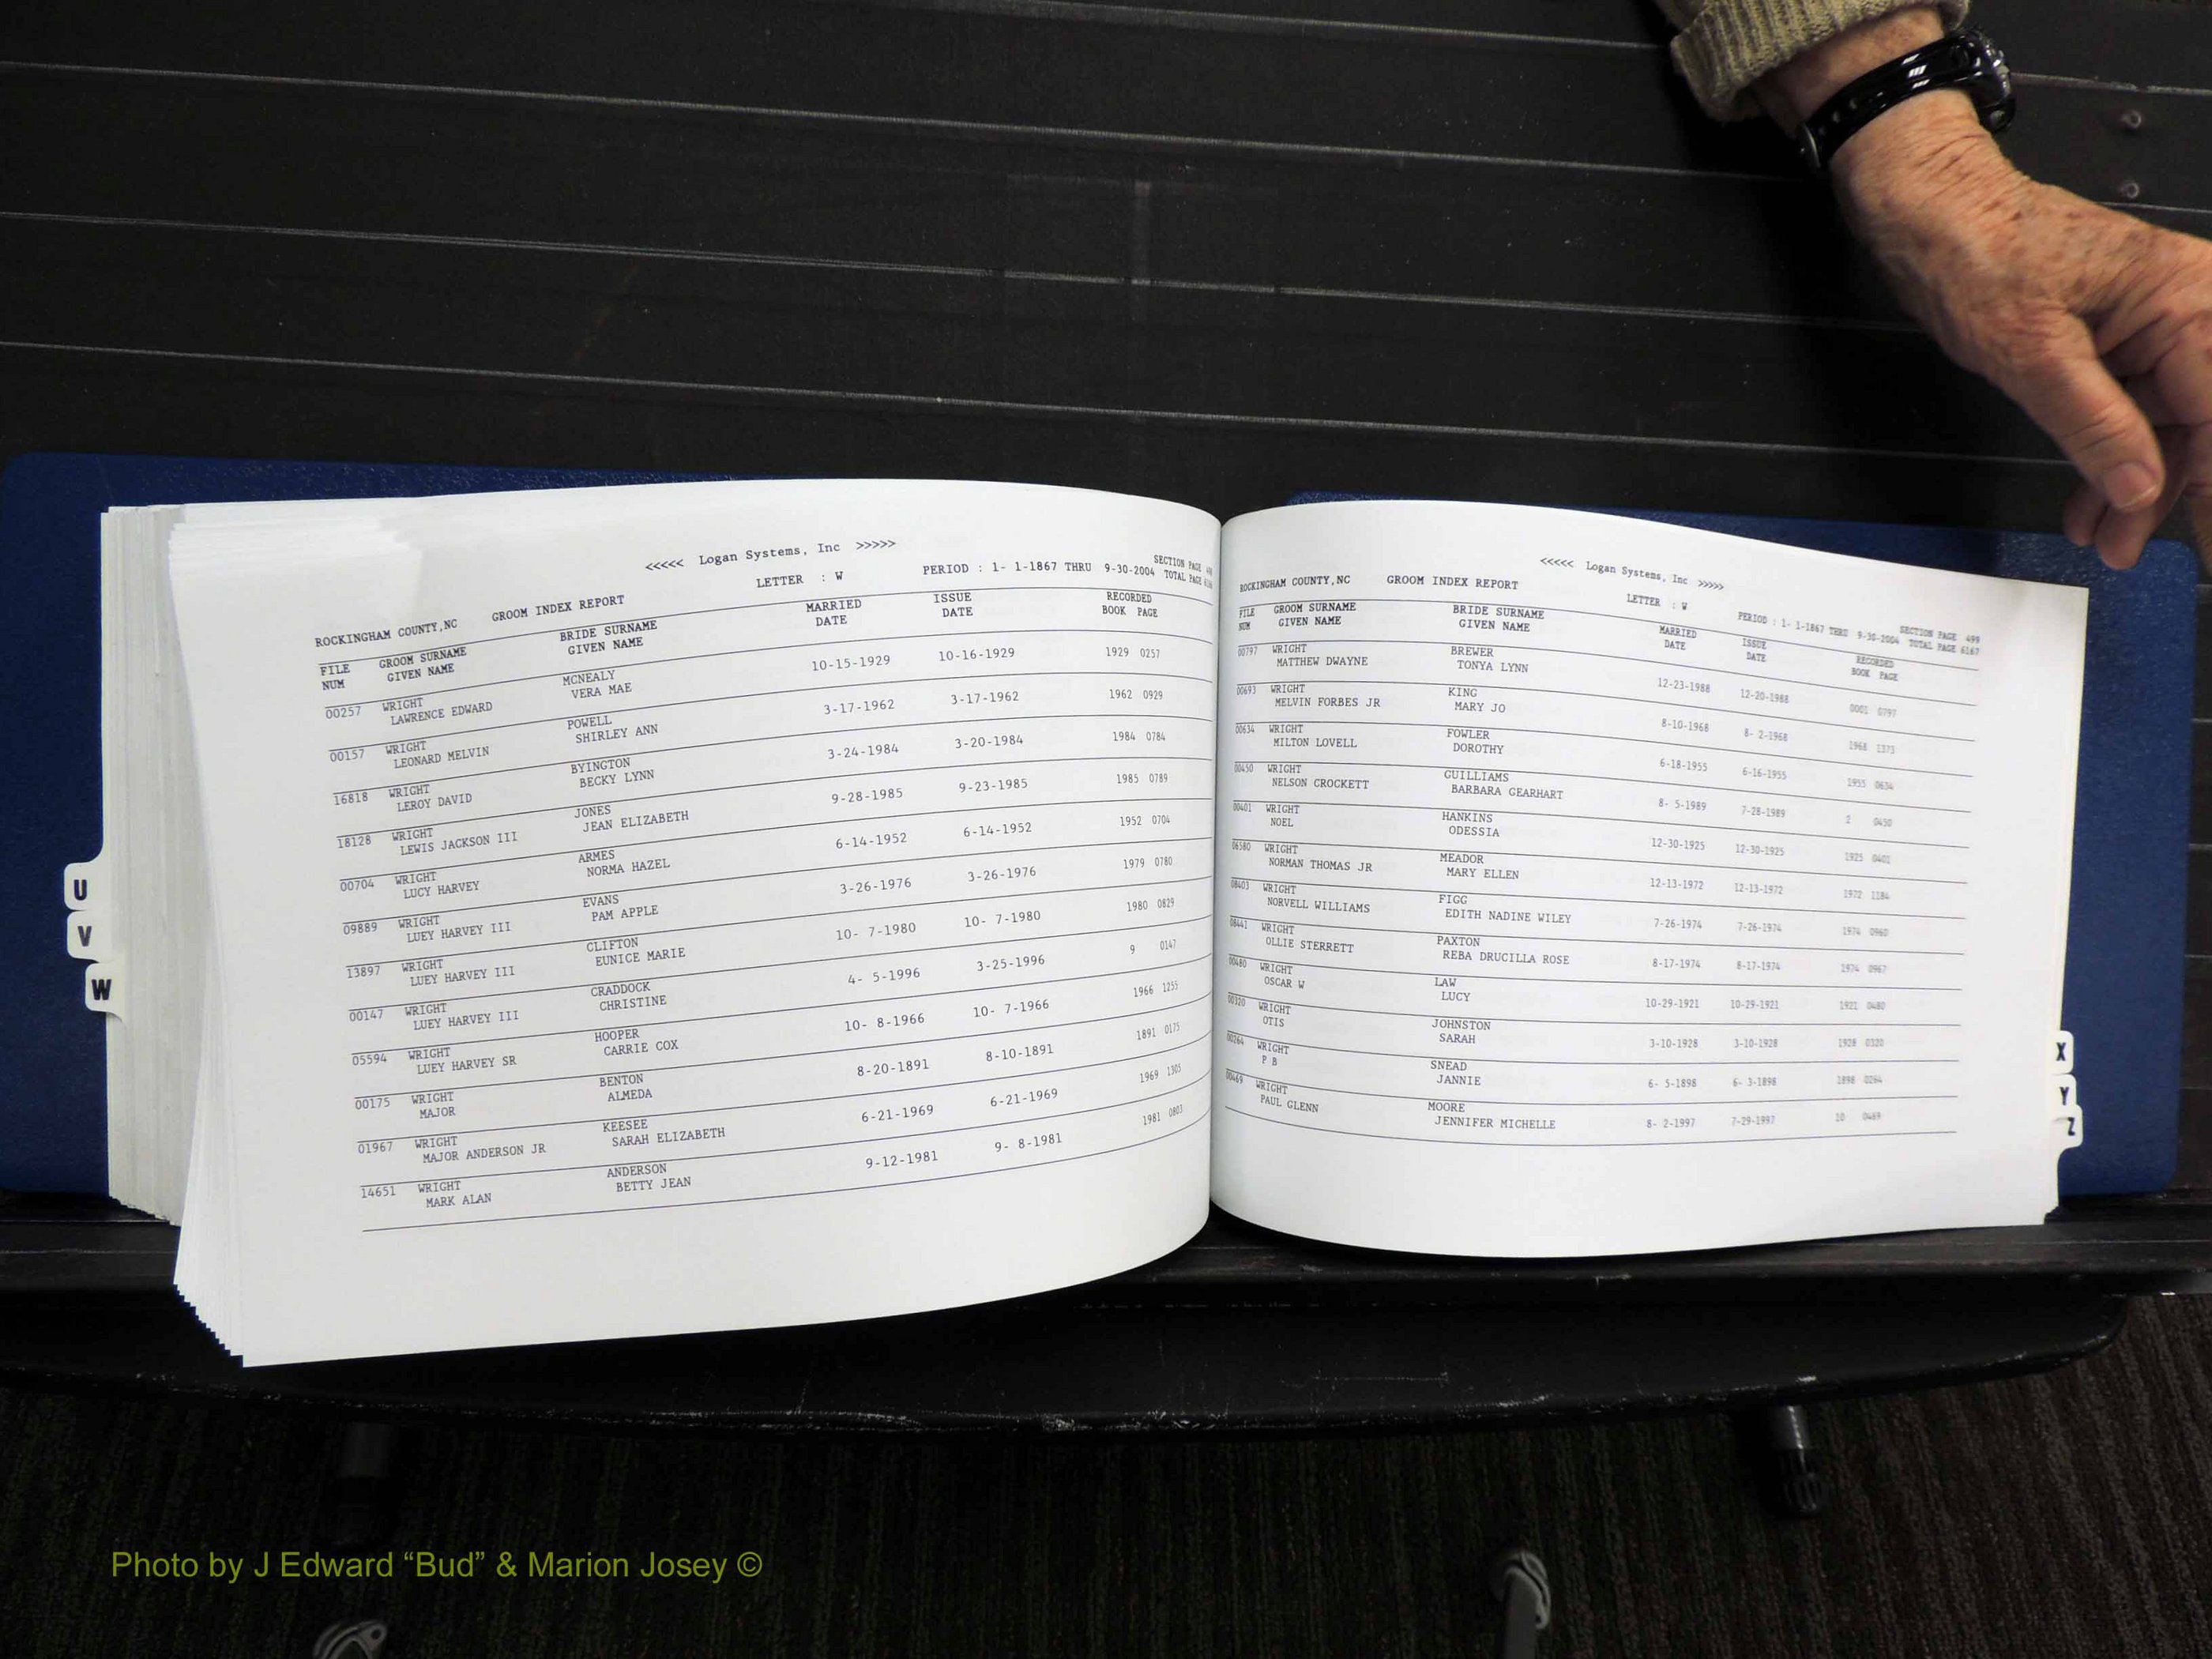 <<<<< Logan Systems, Inc >>>>>
ROCKINGHAM COUNTY,NC GROOM INDEX REPORT LETTER : W PERIOD : 1- 1-1867 THRU 9-30-2004 SECTION PAGE
TOTAL PAGE
FILE GROOM SURNAME BRIDE SURNAME MARRIED ISSUE RECORDED
NUM GIVEN NAME GIVEN NAME DATE DATE BOOK PAGE
00257 WRIGHT MCNEALY 10-15-1929 10-16-1929 1929 0257
LAWRENCE EDWARD VERA MAE
00157 WRIGHT POWELL 3-17-1962 3-17-1962 1962 0929
LEONARD MELVIN SHIRLEY ANN
16818 WRIGHT BYINGTON 3-24-1984 3-20-1984 1984 0784
LEROY DAVID BECKY LYNN
18128 WRIGHT JONES 9-28-1985 9-23-1985 1985 0789
LEWIS JACKSON III JEAN ELIZABETH
00704 WRIGHT ARMES 6-14-1952 6-14-1952 1952 0704
LUCY HARVEY NORMA HAZEL
09889 WRIGHT EVANS 3-26-1976 3-26-1976 1979 0780
LUEY HARVEY III PAM APPLE
13897 WRIGHT CLIFTON 10- 7-1980 10- 7-1980 1980 0829
LUEY HARVEY III EUNICE MARIE
00147 WRIGHT CRADDOCK 4- 5-1996 3-25-1996 9 0147
LUEY HARVEY III CHRISTINE
05594 WRIGHT HOOPER 10- 8-1966 10- 7-1966 1966 1255
LUEY HARVEY SR CARRIE COX
00175 WRIGHT BENTON 8-20-1891 8-10-1891 1891 0175
MAJOR ALMEDA
01967 WRIGHT KEESEE 6-21-1969 6-21-1969 1969 1305
MAJOR ANDERSON JR SARAH ELIZABETH
14651 WRIGHT ANDERSON 9-12-1981 9- 8-1981 1981 0803
MARK ALAN BETTY JEAN
U
V
W
<<<<< Logan Systems, Inc >>>>>
ROCKINGHAM COUNTY,NC GROOM INDEX REPORT LETTER : W PERIOD : 1- 1-1867 THRU 9-30-2004 SECTION PAGE 499
TOTAL PAGE 6167
FILE GROOM SURNAME BRIDE SURNAME MARRIED ISSUE RECORDED
NUM GIVEN NAME GIVEN NAME DATE DATE BOOK PAGE
00797 WRIGHT BREWER 12-23-1988 12-20-1988 0001 0797
MATTHEW DWAYNE TONYA LYNN
00693 WRIGHT KING 8-10-1968 8- 2-1968 1968 1373
MELVIN FORBES JR MARY JO
00634 WRIGHT FOWLER 6-18-1955 6-16-1955 1955 0634
MILTON LOVELL DOROTHY
00450 WRIGHT GUILLIAMS 8- 5-1989 7-28-1989 2 0450
NELSON CROCKETT BARBARA GEARHART
00401 WRIGHT HANKINS 12-30-1925 12-30-1925 1925
NOEL ODESSIA
06580 WRIGHT MEADOR 12-13-1972 12-13-1972 1972 1184
NORMAN THOMAS JR MARY ELLEN
08403 WRIGHT FIGG 7-26-1974 7-26-1974 1974 0960
NORVELL WILLIAMS EDITH NADINE WILEY
08441 WRIGHT PAXTON 8-17-1974 8-17-1974 1974 0967
OLLIE STERRETT REBA DRUCILLA ROSE
00480 WRIGHT LAW 10-29-1921 10-29-1921 1921 0480
OSCAR W LUCY
00320 WRIGHT JOHNSTON 3-10-1928 3-10-1928 1928 0320
OTIS SARAH
00264 WRIGHT SNEAD 6- 5-1898 6- 3-1898 1898 0264
P B JANNIE
00469 WRIGHT MOORE 8- 2-1997 7-29-1997 10 0469
PAUL GLENN JENNIFER MICHELLE
X
Y
Z
Photo by J Edward “Bud” & Marion Josey ©